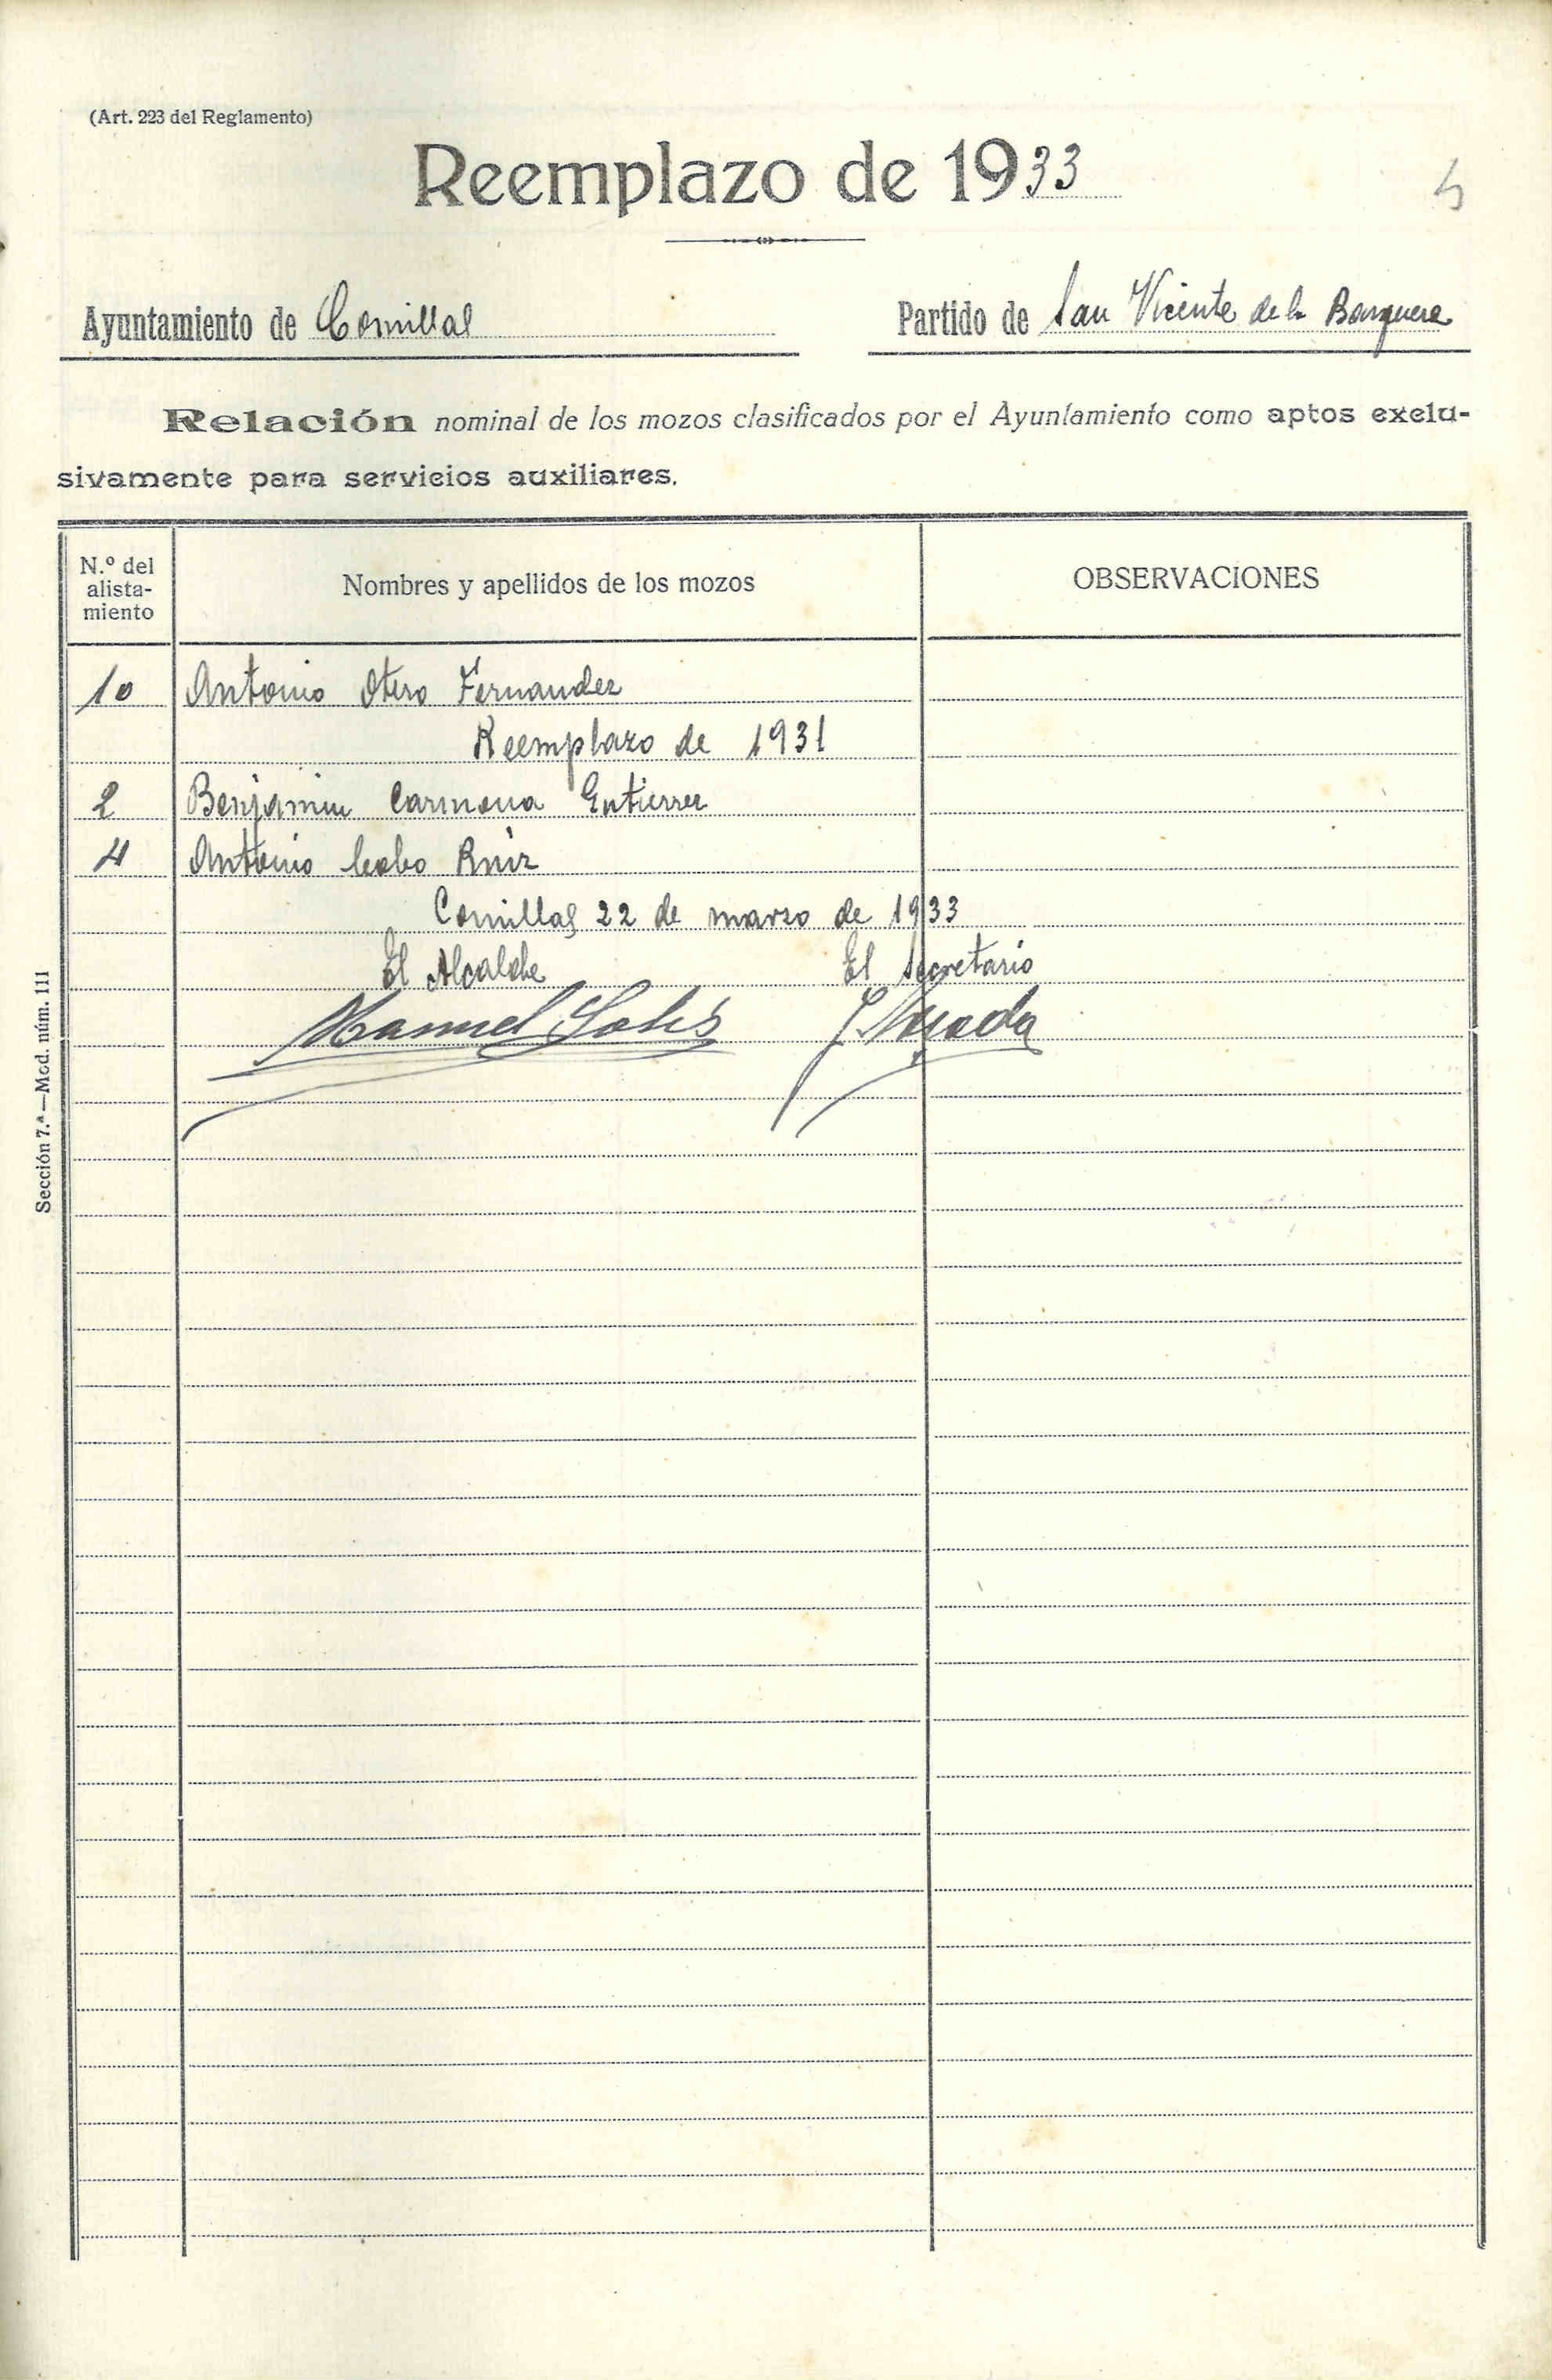 (Art. 223 del Reglamento)
Reemplazo de 1933
5
Ayuntamiento de Comillas Partido de San Vicente de la Barquera
Relación nominal de los mozos clasificados por el Ayuntamiento como aptos exclu-
sivamente para servicios auxiliares.
N.º del alista-miento Nombres y apellidos de los mozos OBSERVACIONES
10 Antonio Otero Fernandez
Reemplazo de 1931
2 Benjamin Carmona Gutierrez
4 Antonio Cobo Ruiz
Comillas 22 de marzo de 1933
El Alcalde El Secretario
Manuel Solis
Sección 7.ª—Mod. núm. 111